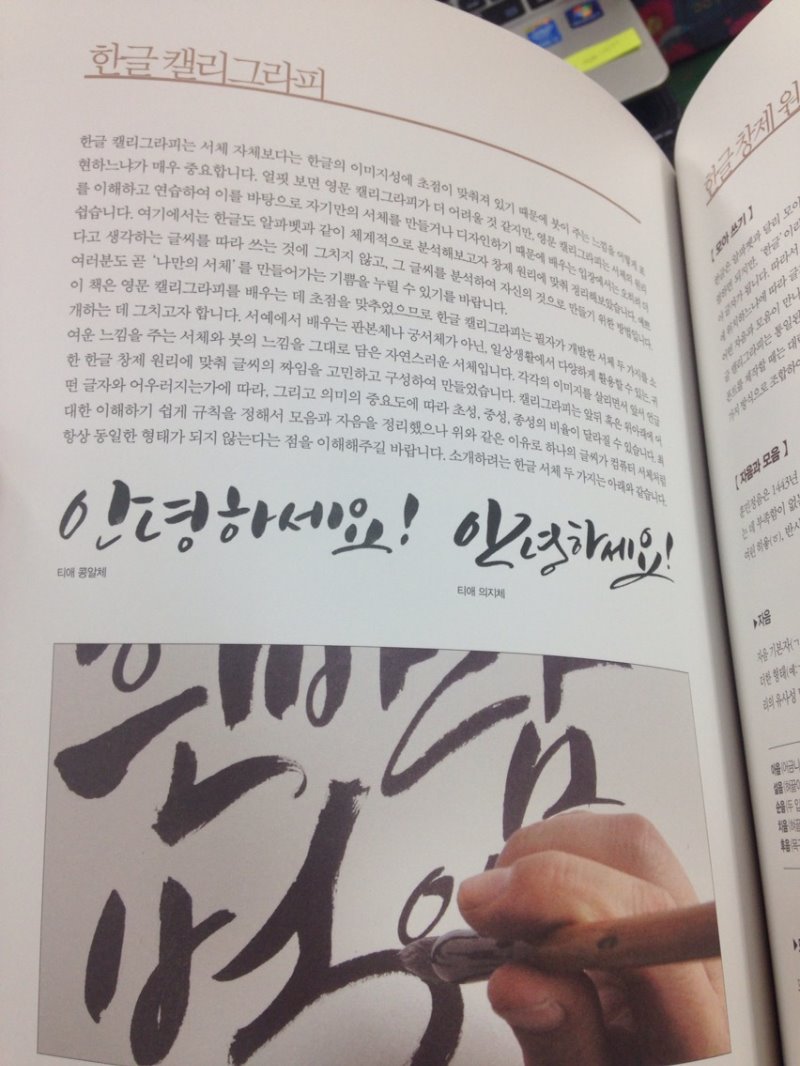 한글 캘리그라피
한글 캘리그라피는 서체 자체보다는 한글의 이미지성에 초점이 맞춰져 있기 때문에 붓이 주는 느낌을 어떻게 표
현하느냐가 매우 중요합니다. 얼핏 보면 영문 캘리그라피가 더 어려울 것 같지만, 영문 캘리그라피는 서체의 원리
를 이해하고 연습하여 이를 바탕으로 자기만의 서체를 만들거나 디자인하기 때문에 배우는 입장에서는 오히려 더
쉽습니다. 여기에서는 한글도 알파벳과 같이 체계적으로 분석해보고자 창제 원리에 맞춰 정리해보았습니다. 예쁘
다고 생각하는 글씨를 따라 쓰는 것에 그치지 않고, 그 글씨를 분석하여 자신의 것으로 만들기 위한 방법입니다.
여러분도 곧 ‘나만의 서체’를 만들어가는 기쁨을 누릴 수 있기를 바랍니다.
이 책은 영문 캘리그라피를 배우는 데 초점을 맞추었으므로 한글 캘리그라피는 필자가 개발한 서체 두 가지를 소
개하는 데 그치고자 합니다. 서예에서 배우는 판본체나 궁서체가 아닌, 일상생활에서 다양하게 활용할 수 있는, 귀
여운 느낌을 주는 서체와 붓의 느낌을 그대로 담은 자연스러운 서체입니다. 각각의 이미지를 살리면서 앞서 언급
한 한글 창제 원리에 맞춰 글씨의 짜임을 고민하고 구성하여 만들었습니다. 캘리그라피는 앞뒤 혹은 위아래에 어
떤 글자와 어우러지는가에 따라, 그리고 의미의 중요도에 따라 초성, 중성, 종성의 비율이 달라질 수 있습니다. 최
대한 이해하기 쉽게 규칙을 정해서 모음과 자음을 정리했으나 위와 같은 이유로 하나의 글씨가 컴퓨터 서체처럼
항상 동일한 형태가 되지 않는다는 점을 이해해주길 바랍니다. 소개하려는 한글 서체 두 가지는 아래와 같습니다.
안녕하세요!
티애 콩알체
안녕하세요!
티애 의지체
한글 창제 원
[ 모아 쓰기 ]
한글은 알파벳과 달리 모아
[ 자음과 모음 ]
훈민정음은 1443년
는 데 부족함이 없는
▶자음
자음 기본자(ㄱ
더한 형태(예:
리의 유사성
아음(어금니
설음(혀끝이
순음(두 입
치음(혀끝
후음(목구